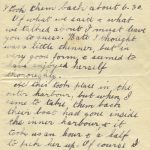 took them back about 6.30
Of what we said & what
we talked about I must leave
you to guess. I thought
was a little thinner, but in
very good form & seemed to
have enjoyed herself
thoroughly.
All this took place in the
outer harbour, but when I
came to take them back
their boat had gone inside
the inner harbour & it
took us an hour & a half
to pick her up. Of course I